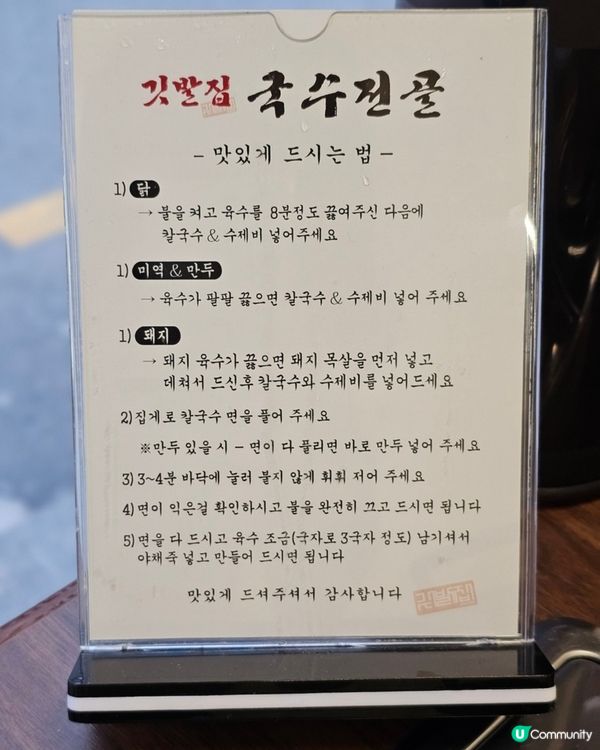 깃발집 국수전골
- 맛있게 드시는 법 -
1) 닭
→ 불을 켜고 육수를 8분정도 끓여주신 다음에
칼국수 & 수제비 넣어주세요
1) 미역 & 만두
→ 육수가 팔팔 끓으면 칼국수 & 수제비 넣어 주세요
1) 돼지
→ 돼지 육수가 끓으면 돼지 목살을 먼저 넣고
데쳐서 드신후 칼국수와 수제비를 넣어드세요
2) 집게로 칼국수 면을 풀어 주세요
※만두 있을 시 - 면이 다 풀리면 바로 만두 넣어 주세요
3) 3~4분 바닥에 눌러 붙지 않게 휘휘 저어 주세요
4) 면이 익은걸 확인하시고 불을 완전히 끄고 드시면 됩니다
5) 면을 다 드시고 육수 조금(국자로 3국자 정도) 남기셔서
야채죽 넣고 만들어 드시면 됩니다
맛있게 드셔주셔서 감사합니다
깃발집
U Community